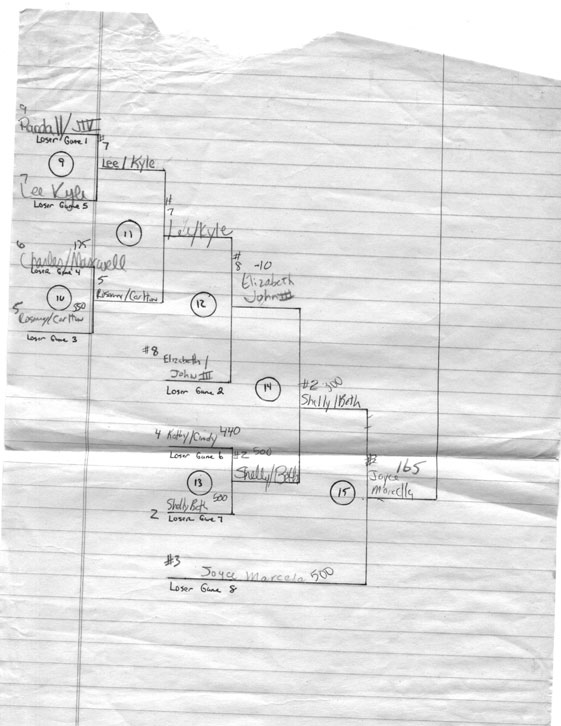 9
Randall/JTV
Loser Game 1
9
7
Lee Kyle
Loser Game 5
#
7
Lee/Kyle
6
175
Charles/Maxwell
Loser Game 4
10
350
5
Rosemary/Carlton
Loser Game 3
5
Rosemary/Carlton
11
#
7
Lee/Kyle
12
#8
Elizabeth/
John III
Loser Game 2
#
8
-10
Elizabeth
John III
14
4 Kathy/Candy 440
Loser Game 6
13
2
Shelly Beth 500
Loser Game 7
#2 500
Shelly/Beth
#2 300
Shelly/Beth
15
165
Joyce
Marcella
#3
Joyce Marcela 500
Loser Game 8